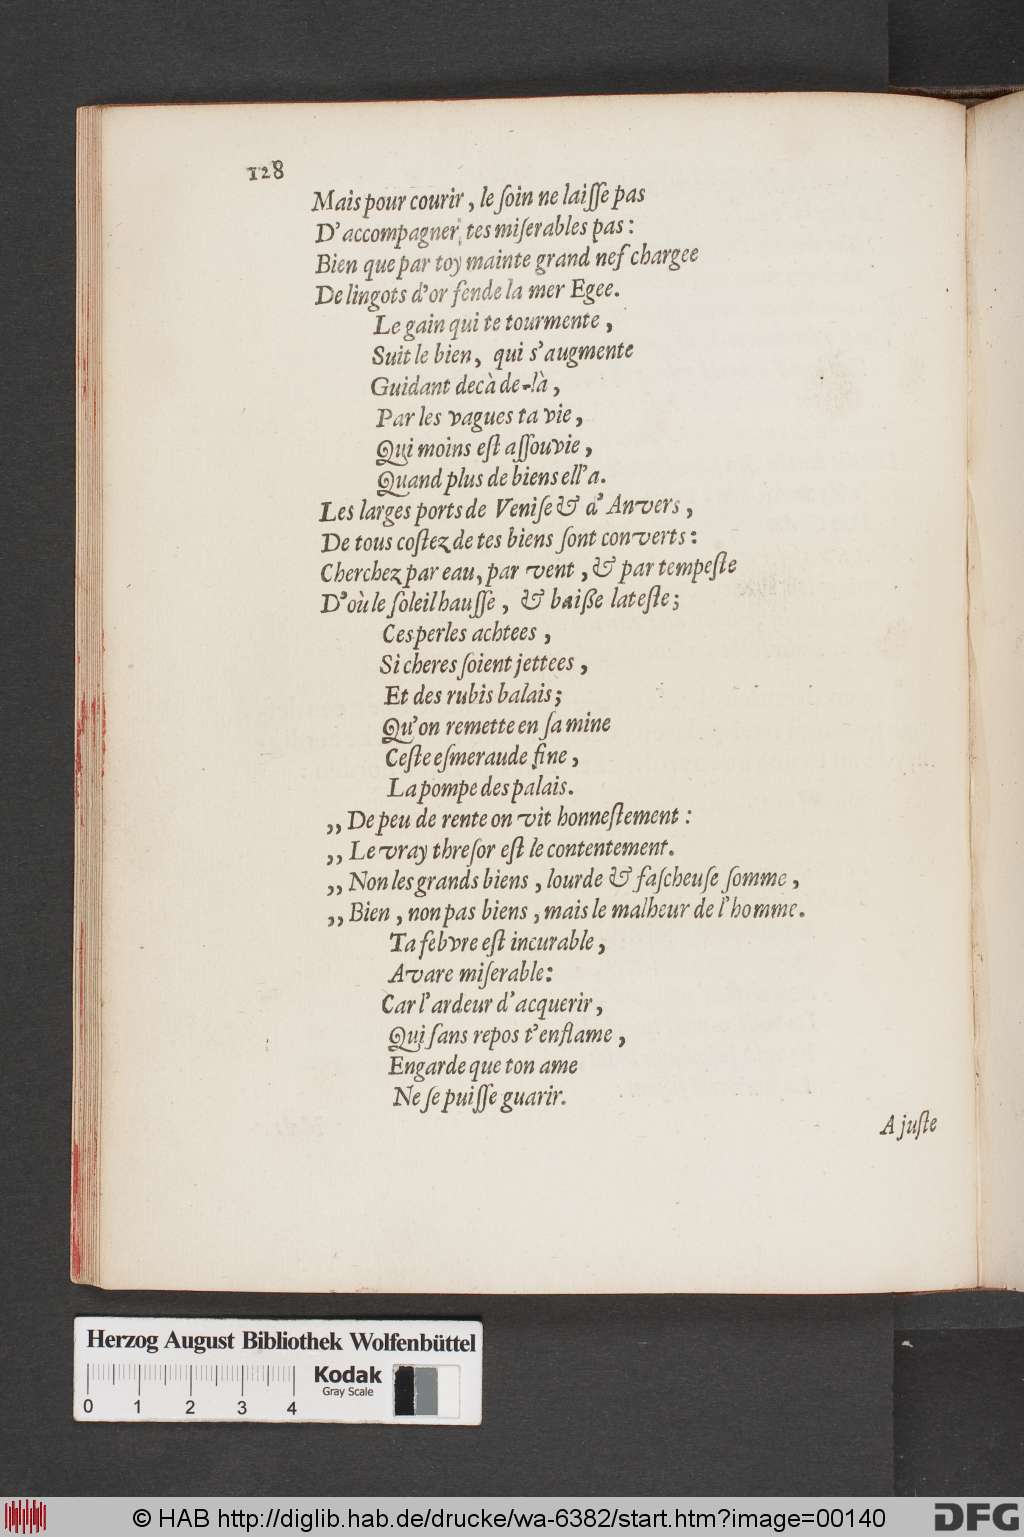 128
Mais pour courir, le ſoin ne laiſſe pas
D'accompagner tes miſerables pas:
Bien que par toy mainte grand nef chargee
De lingots d'or fende la mer Egee.
Le gain qui te tourmente,
Suit le bien, qui s'augmente
Guidant decà de-là,
Par les vagues ta vie,
Qui moins eſt aſſouvie,
Quand plus de biens ell'a.
Les larges ports de Veniſe & d'Anvers,
De tous coſtez de tes biens ſont converts:
Cherchez par eau, par vent, & par tempeſte
D'où le ſoleil hauſſe, & baiße la teſte;
Ces perles achtees,
Si cheres ſoient jettees,
Et des rubis balais;
Qu'on remette en ſa mine
Ceſte eſmeraude fine,
La pompe des palais.
,, De peu de rente on vit honneſtement:
,, Le vray threſor eſt le contentement.
,, Non les grands biens, lourde & faſcheuſe ſomme,
,, Bien, non pas biens, mais le malheur de l'homme.
Ta febvre eſt incurable,
Avare miſerable:
Car l'ardeur d'acquerir,
Qui ſans repos t'enflame,
Engarde que ton ame
Ne ſe puiſſe guarir.
A juſte
Herzog August Bibliothek Wolfenbüttel
Kodak
Gray Scale
0 1 2 3 4
© HAB http://diglib.hab.de/drucke/wa-6382/start.htm?image=00140
DFG